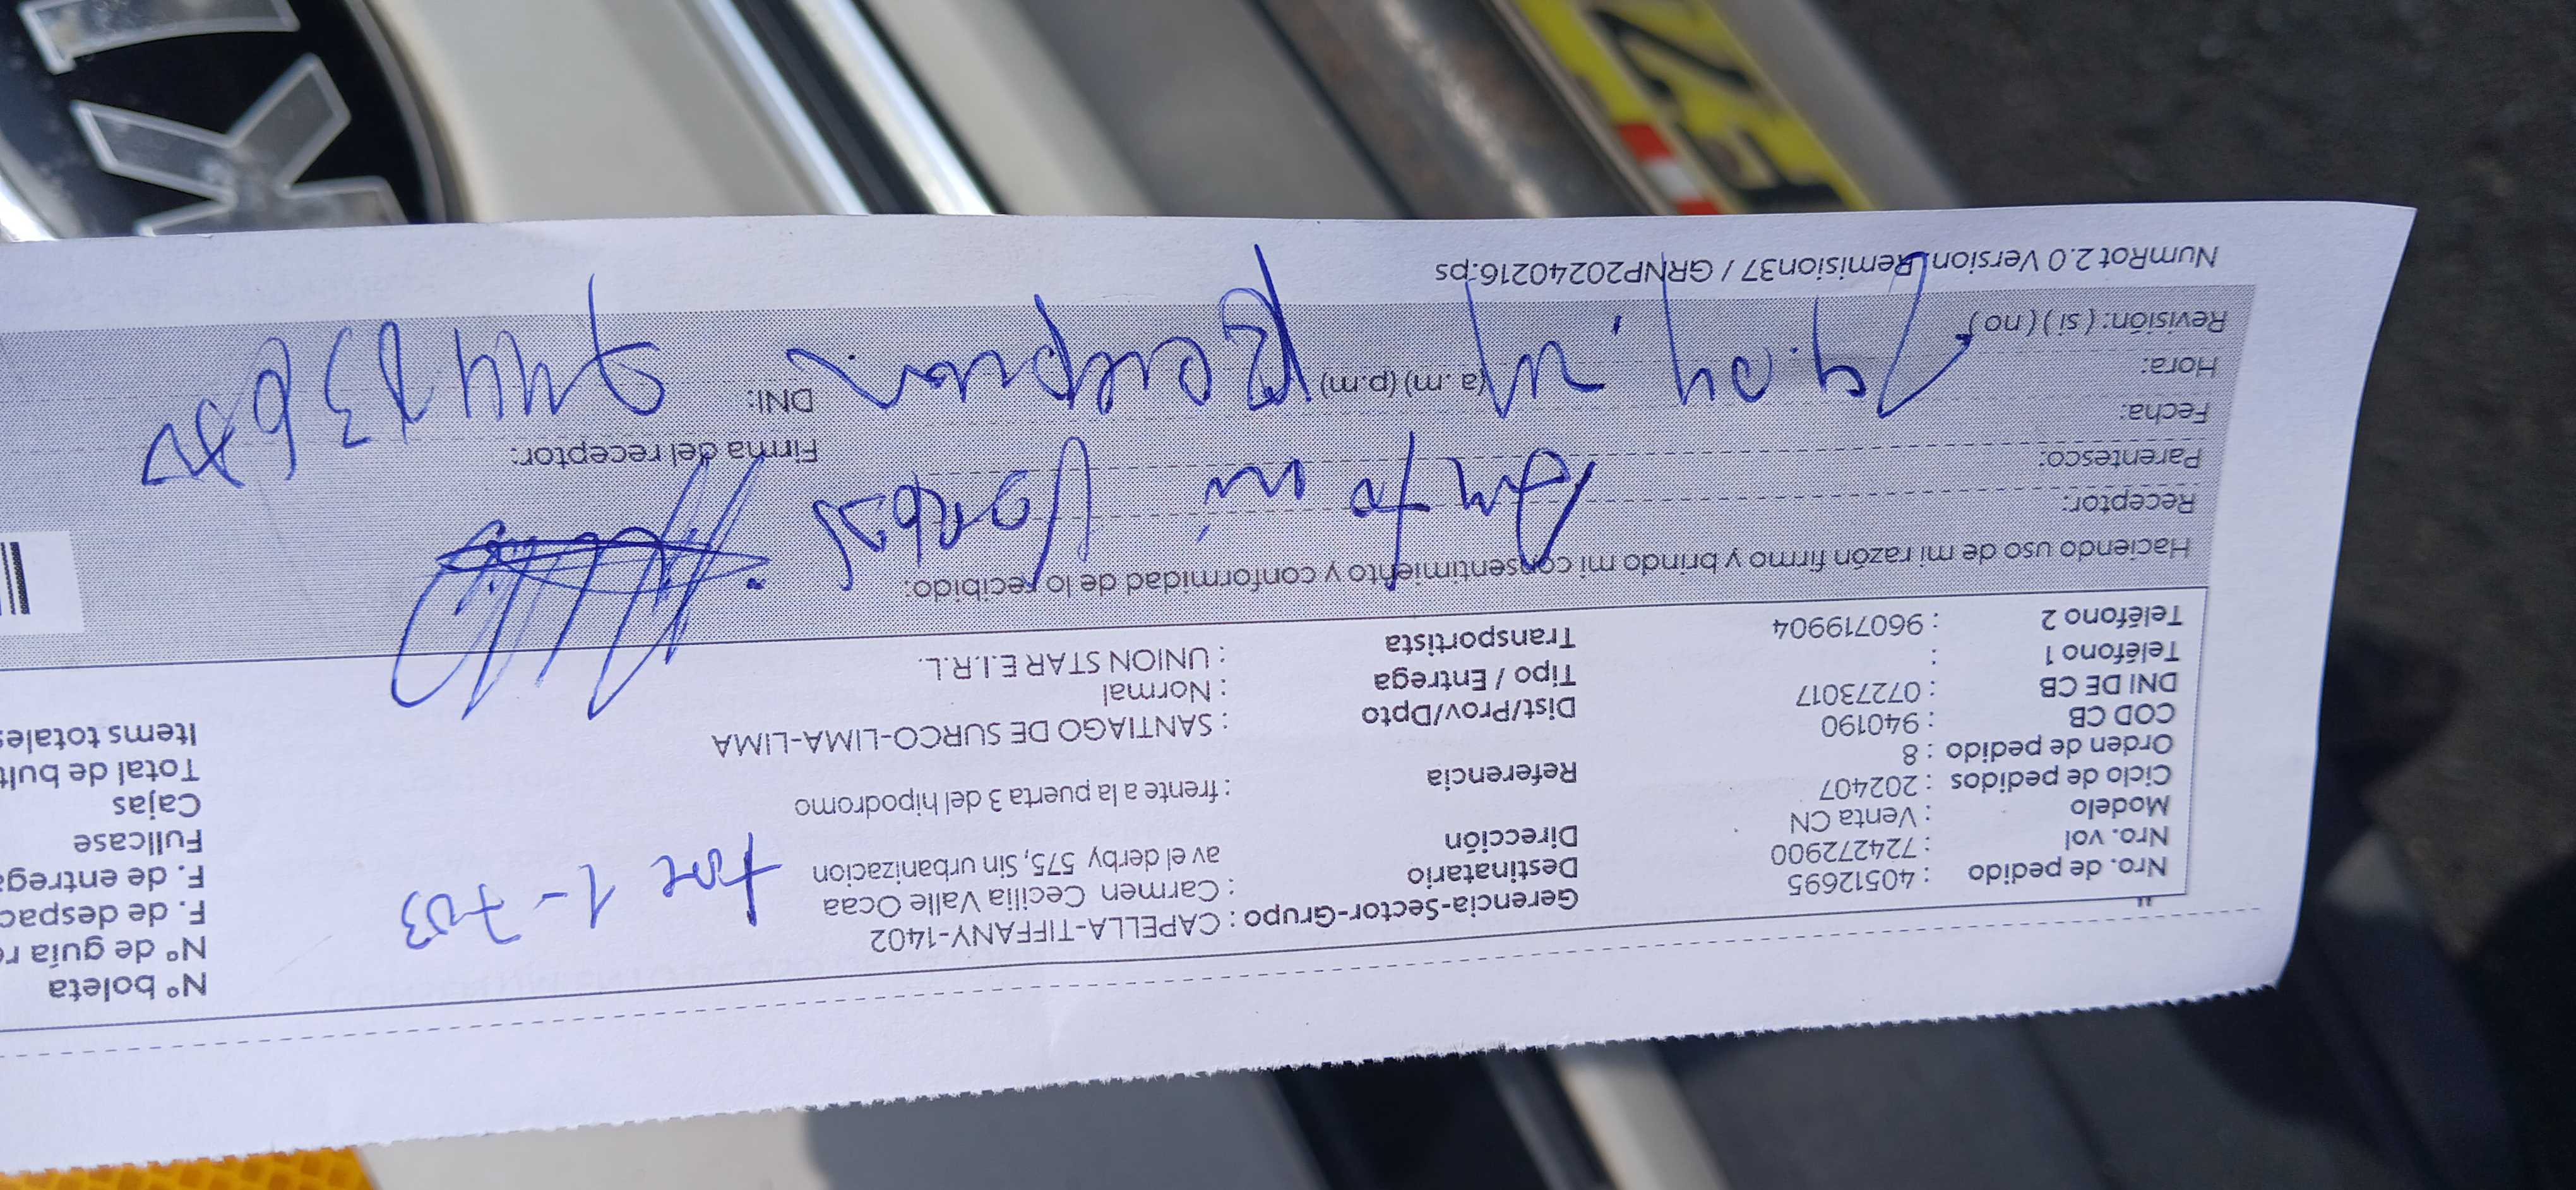 Nº boleta
Nº de guía re
F. de despac
F. de entrega
Fullcase
Cajas
Total de bult
Items totales
Gerencia-Sector-Grupo : CAPELLA-TIFFANY-1402
Nro. de pedido : 40512695
Destinatario : Carmen Cecilia Valle Ocaa
Nro. vol : 724272900
Dirección av el derby 575, Sin urbanizacion
1-703
Modelo : Venta CN
Ciclo de pedidos : 202407
Referencia : frente a la puerta 3 del hipodromo
Orden de pedido : 8
COD CB : 940190
Dist/Prov/Dpto : SANTIAGO DE SURCO-LIMA-LIMA
DNI DE CB : 07273017
Tipo / Entrega : Normal
Teléfono 1 :
Transportista : UNION STAR E.I.R.L.
Teléfono 2 : 960719904
Haciendo uso de mi razón firmo y brindo mi consentimiento y conformidad de lo recibido:
Receptor:
Parentesco:
Firma del receptor:
Fecha:
DNI:
Hora: (a.m) (p.m)
Revisión: ( si ) ( no )
NumRot 2.0 Version:Remision37 / GRNP20240216.ps